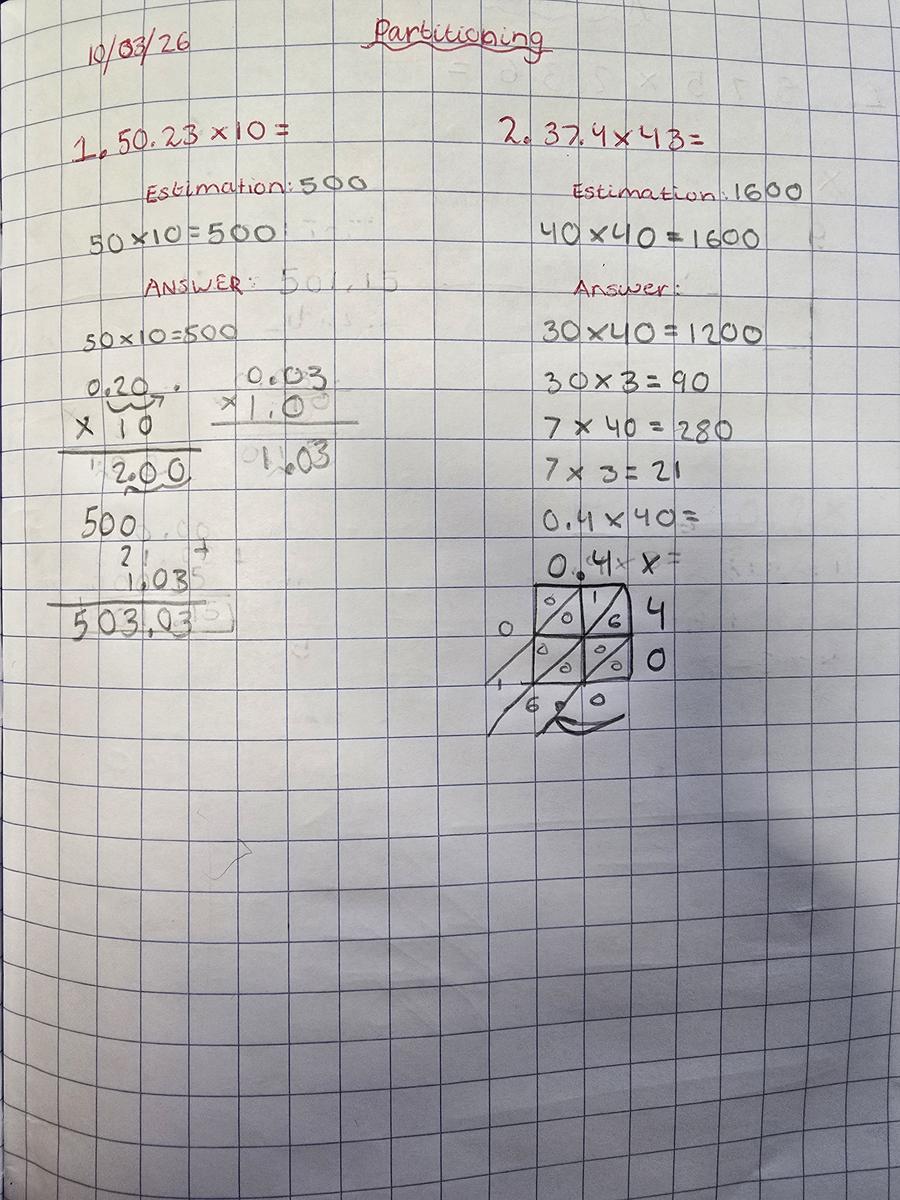 10/03/26
Partitioning
1. 50.23 × 10 =
Estimation: 500
50 × 10 = 500
ANSWER: 501.15
50 × 10 = 500
0.20
× 10
2.00
0.03
× 1.0
1.03
500
2 +
1.03
503.03
2. 37.4 × 43 =
Estimation: 1600
40 × 40 = 1600
Answer:
30 × 40 = 1200
30 × 3 = 90
7 × 40 = 280
7 × 3 = 21
0.4 × 40 =
0.4 × =
0 0 0 1 6 4
0 0 0 0 0
1 6 0